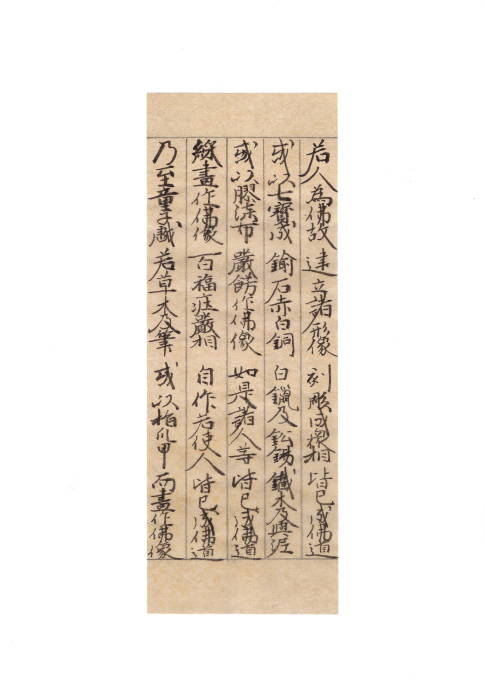 若人為佛故 建立諸形像 刻彫成衆相 皆已成佛道
或以七寶成 鍮石赤白銅 白鑞及鈆錫 鐵木及與泥
或以膠漆布 嚴飾作佛像 如是諸人等 皆已成佛道
綵畫作佛像 百福莊嚴相 自作若使人 皆已成佛道
乃至童子戲 若草木及筆 或以指爪甲 而畫作佛像